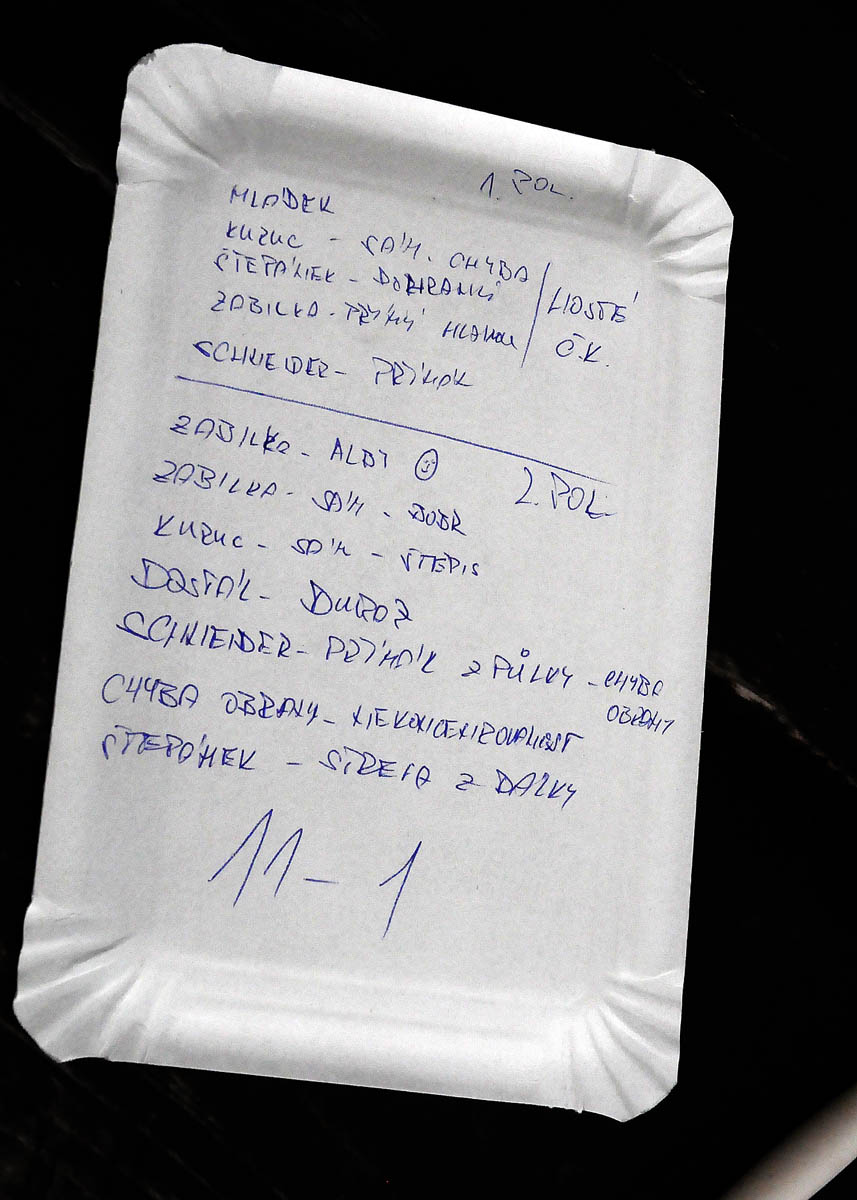 1. POL.
MLÁDEK
KUZUC - SÁM. CHYBA
ŠTEPÁNEK - DOHRÁVKA
ZABILKA - PŘÍMÝ HLAVOU
HOSTÉ
Č.K.
SCHNEIDER - PŘÍMÁK
ZABILKA - ALBI
2. POL.
ZABILKA - SÁM - DODR
KUZUC - SÁM - ŠTEPIS
DOSTÁL - DUROŽ
SCHNEIDER - PŘÍMÁK Z PŮLKY - CHYBA
OBRANY
CHYBA OBRANY - NEKONCENTROVANOST
ŠTEPÁNEK - STŘELA Z DÁLKY
11 - 1